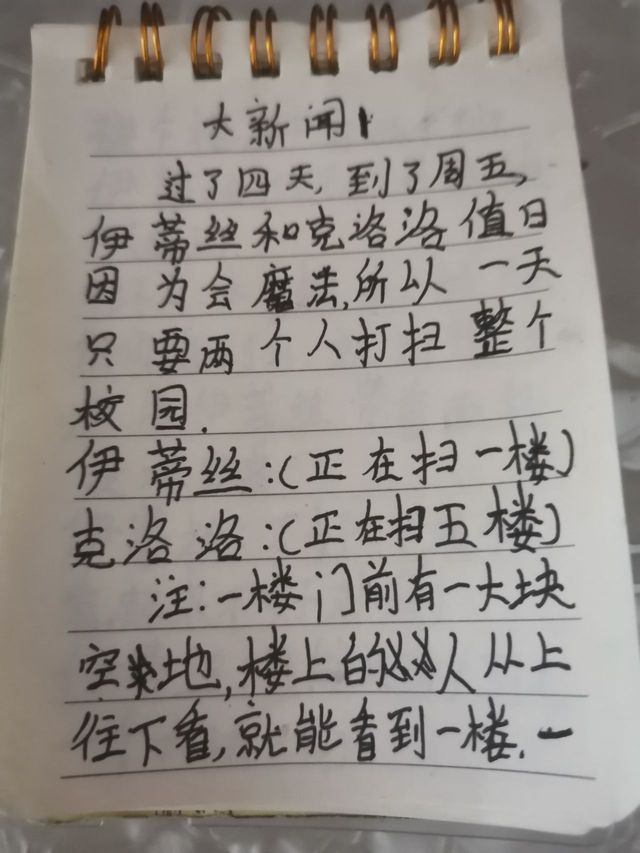 大新闻1
过了四天,到了周五,
伊蒂丝和克洛洛值日
因为会魔法,所以一天
只要两个人打扫整个
校园.
伊蒂丝:(正在扫一楼)
克洛洛:(正在扫五楼)
注:一楼门前有一大块
空地,楼上的人从上
往下看,就能看到一楼.一